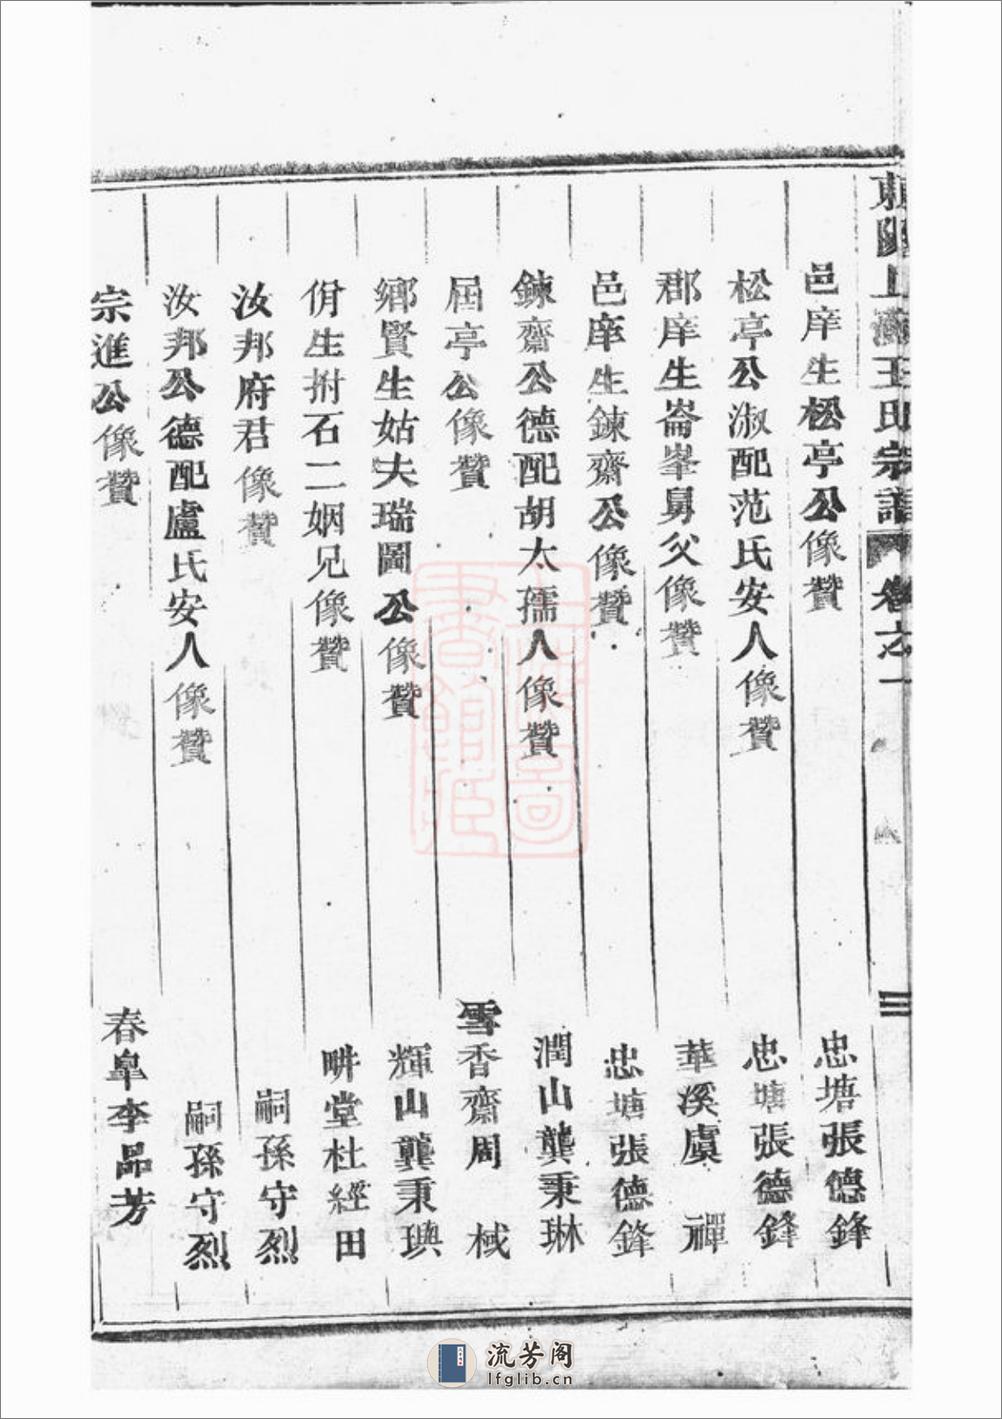 東陽上王氏宗譜 卷之一 三
邑庠生松亭公像贊 忠塘張德鋒
松亭公淑配范氏安人像贊 忠塘張德鋒
郡庠生崙峯舅父像贊 華溪虞 禪
邑庠生鍊齋公像贊 忠塘張德鋒
鍊齋公德配胡太孺人像贊 潤山龔秉琳
居亭公像贊 雪香齋周 棫
鄉賢生姑夫瑞圖公像贊 輝山龔秉璵
佾生拊石二姻兄像贊 畊堂杜經田
汝邦府君像贊 嗣孫守烈
汝邦公德配盧氏安人像贊 嗣孫守烈
宗進公像贊 春臯李品芳
流芳阁
lfglib.cn